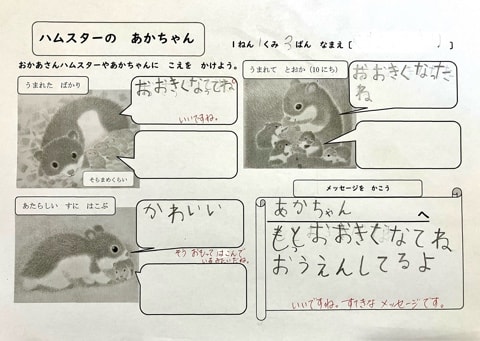 ハムスターの あかちゃん
1ねん 1くみ 3ばん なまえ[ ]
おかあさんハムスターやあかちゃんに こえを かけよう。
うまれた ばかり
おおきくなてね
いいですね。
そらまめくらい
うまれて とおか(10にち)
おおきくなたき
ね
あたらしい すに はこぶ
かわいい
そう おもって はこんで
いるみたいだね。
メッセージを かこう
あかちゃん へ
もっとおおきくなてね
おうえんしてるよ
いいですね。すてきな メッセージです。